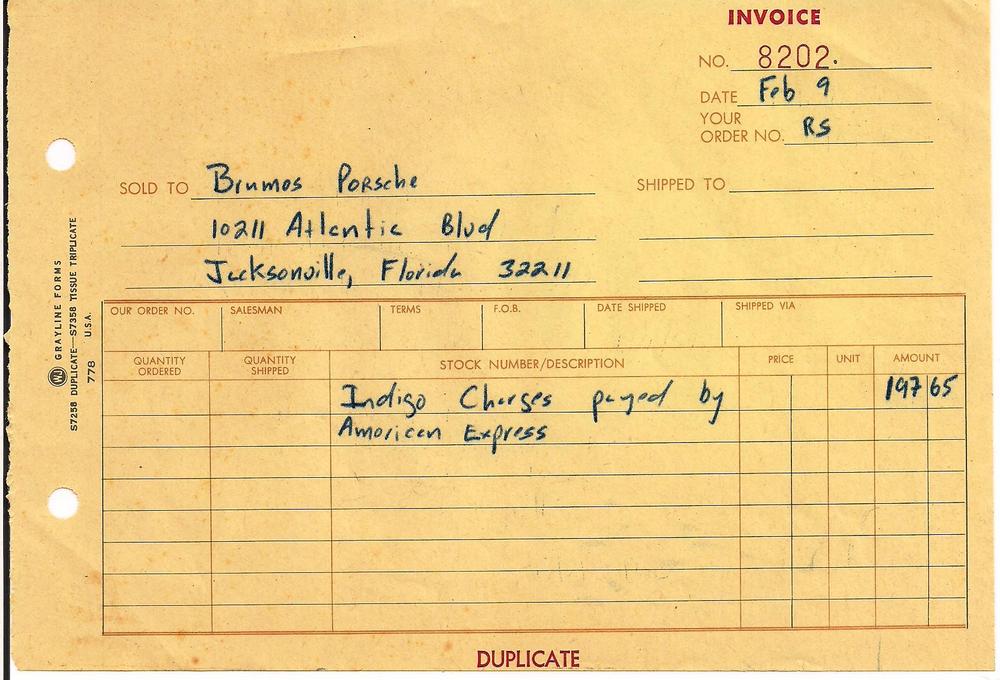 INVOICE
NO. 8202.
DATE Feb 9
YOUR
ORDER NO. RS
SOLD TO Brumos Porsche
SHIPPED TO
10211 Atlantic Blvd
Jacksonville, Florida 32211
OUR ORDER NO. SALESMAN TERMS F.O.B. DATE SHIPPED SHIPPED VIA
QUANTITY ORDERED QUANTITY SHIPPED STOCK NUMBER/DESCRIPTION PRICE UNIT AMOUNT
Indigo Charges payed by 197 65
American Express
DUPLICATE
WJ GRAYLINE FORMS
S7258 DUPLICATE—S7358 TISSUE TRIPLICATE
778 U.S.A.